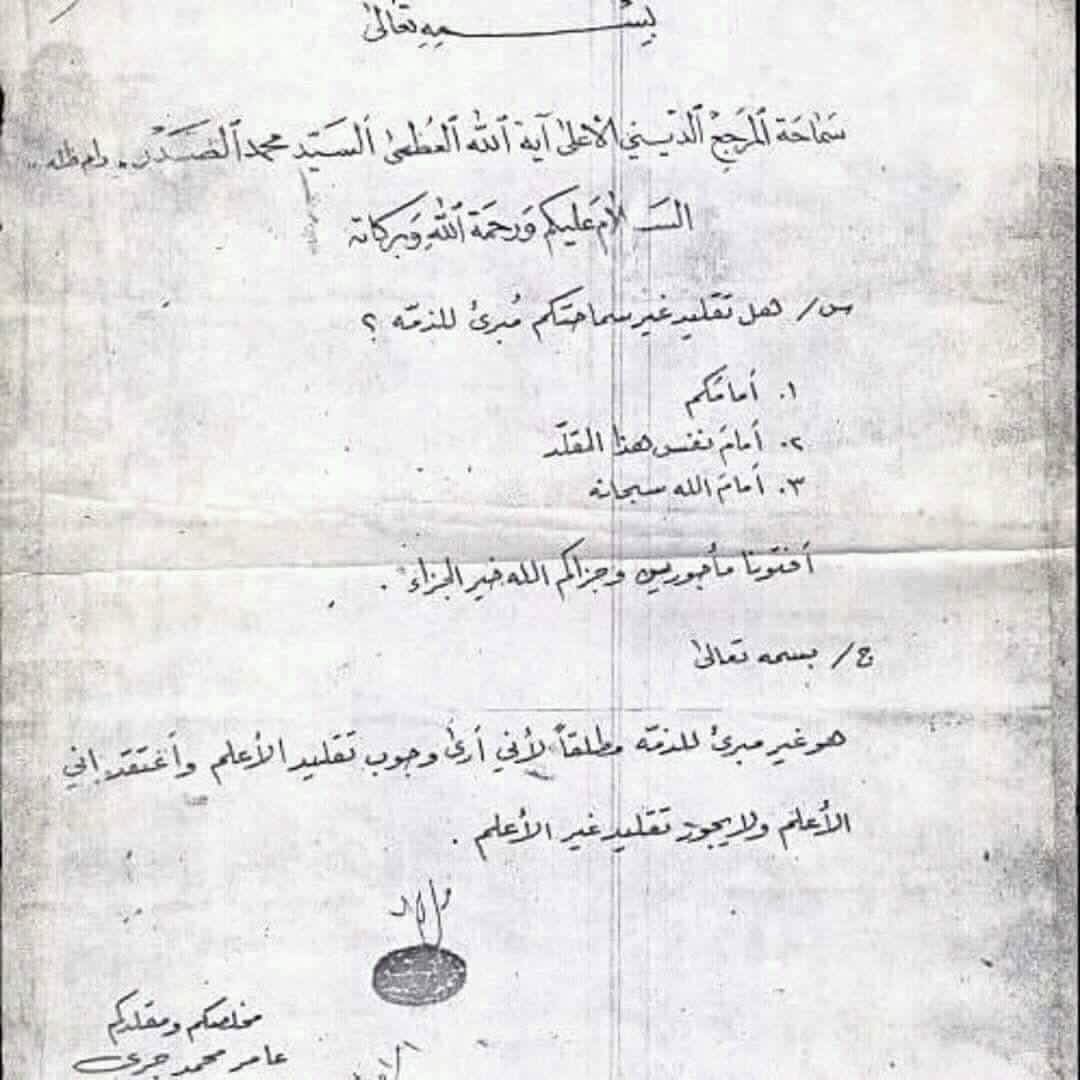 بِسْمِهِ تَعَالىٰ
سَمَاحَة ٱلمَرجَع ٱلدّيني ٱلأعلىٰ آية ٱللّٰه ٱلعُظمىٰ ٱلسَيّد محمد ٱلصَدر .دام ظله..
السَلامُ عَليكم وَرَحمَة ٱللّٰه وَبَركاته
س/ هل تقليد غير سماحتكم مُبرئ للذمّه ؟
١. أمامَكم
٢. أمامَ نفس هذا المقلّد
٣. أمامَ الله سبحانه
أفتونا مأجورين وجزاكم الله خير الجزاء .
ج/ بسمه تعالىٰ
هو غير مبرئ للذمّه مطلقاً لأني أرىٰ وجوب تقليد الأعلم وأعتقد إني
الأعلم ولا يجوز تقليد غير الأعلم .
مخلصكم ومقلدكم
عامر محمد